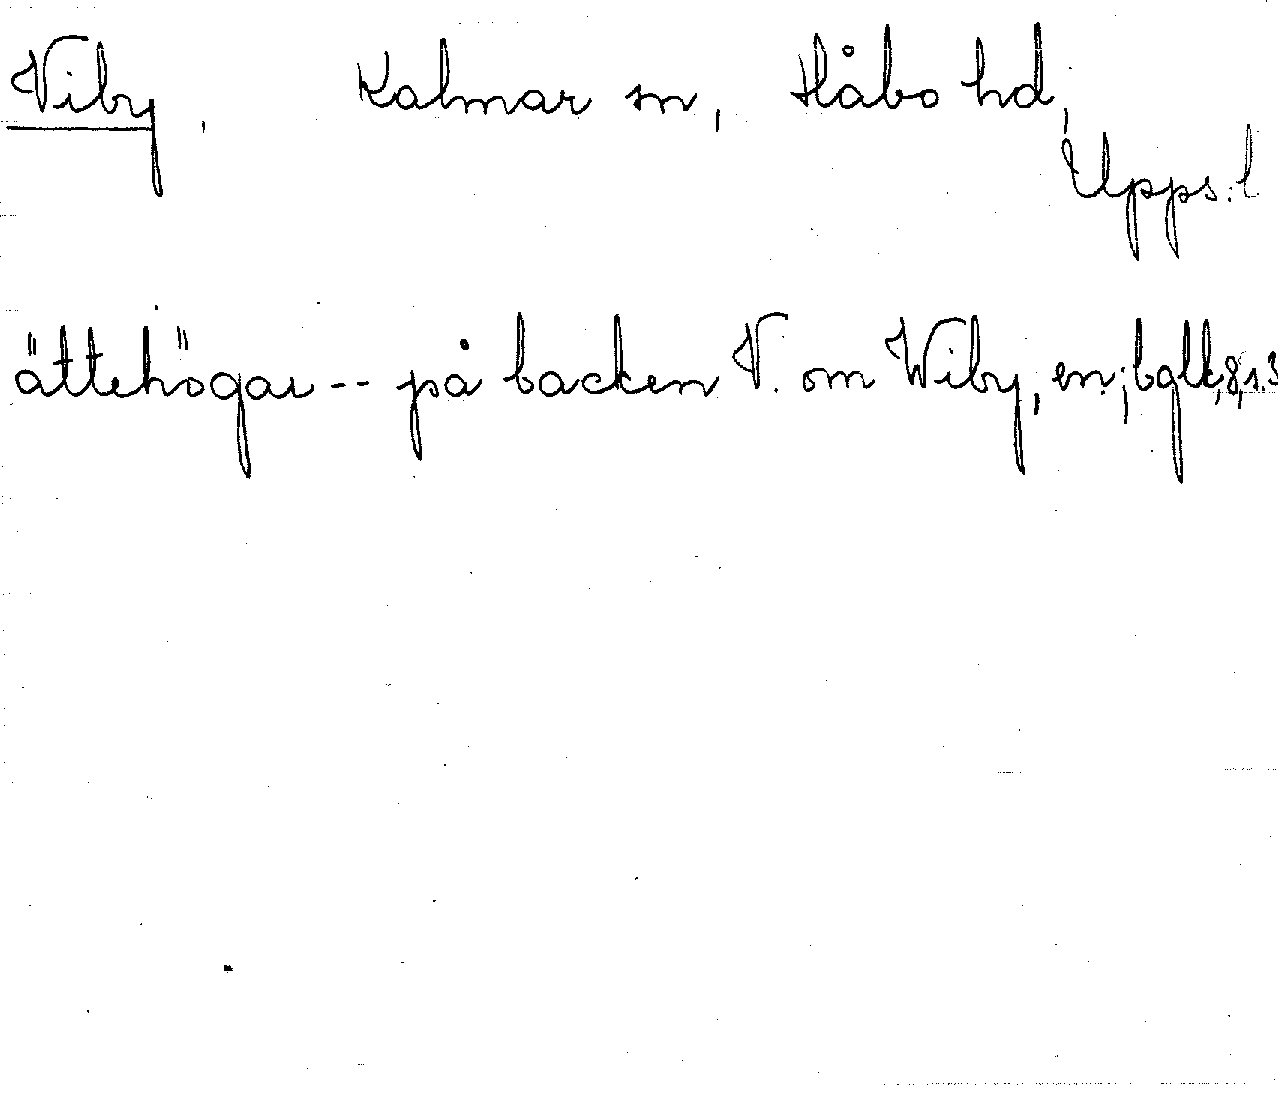 Viby, Kalmar sn, Håbo hd,
Upps. l
ättehögar -- på backen V. om Wiby, en.; bglk, 8, s. 3